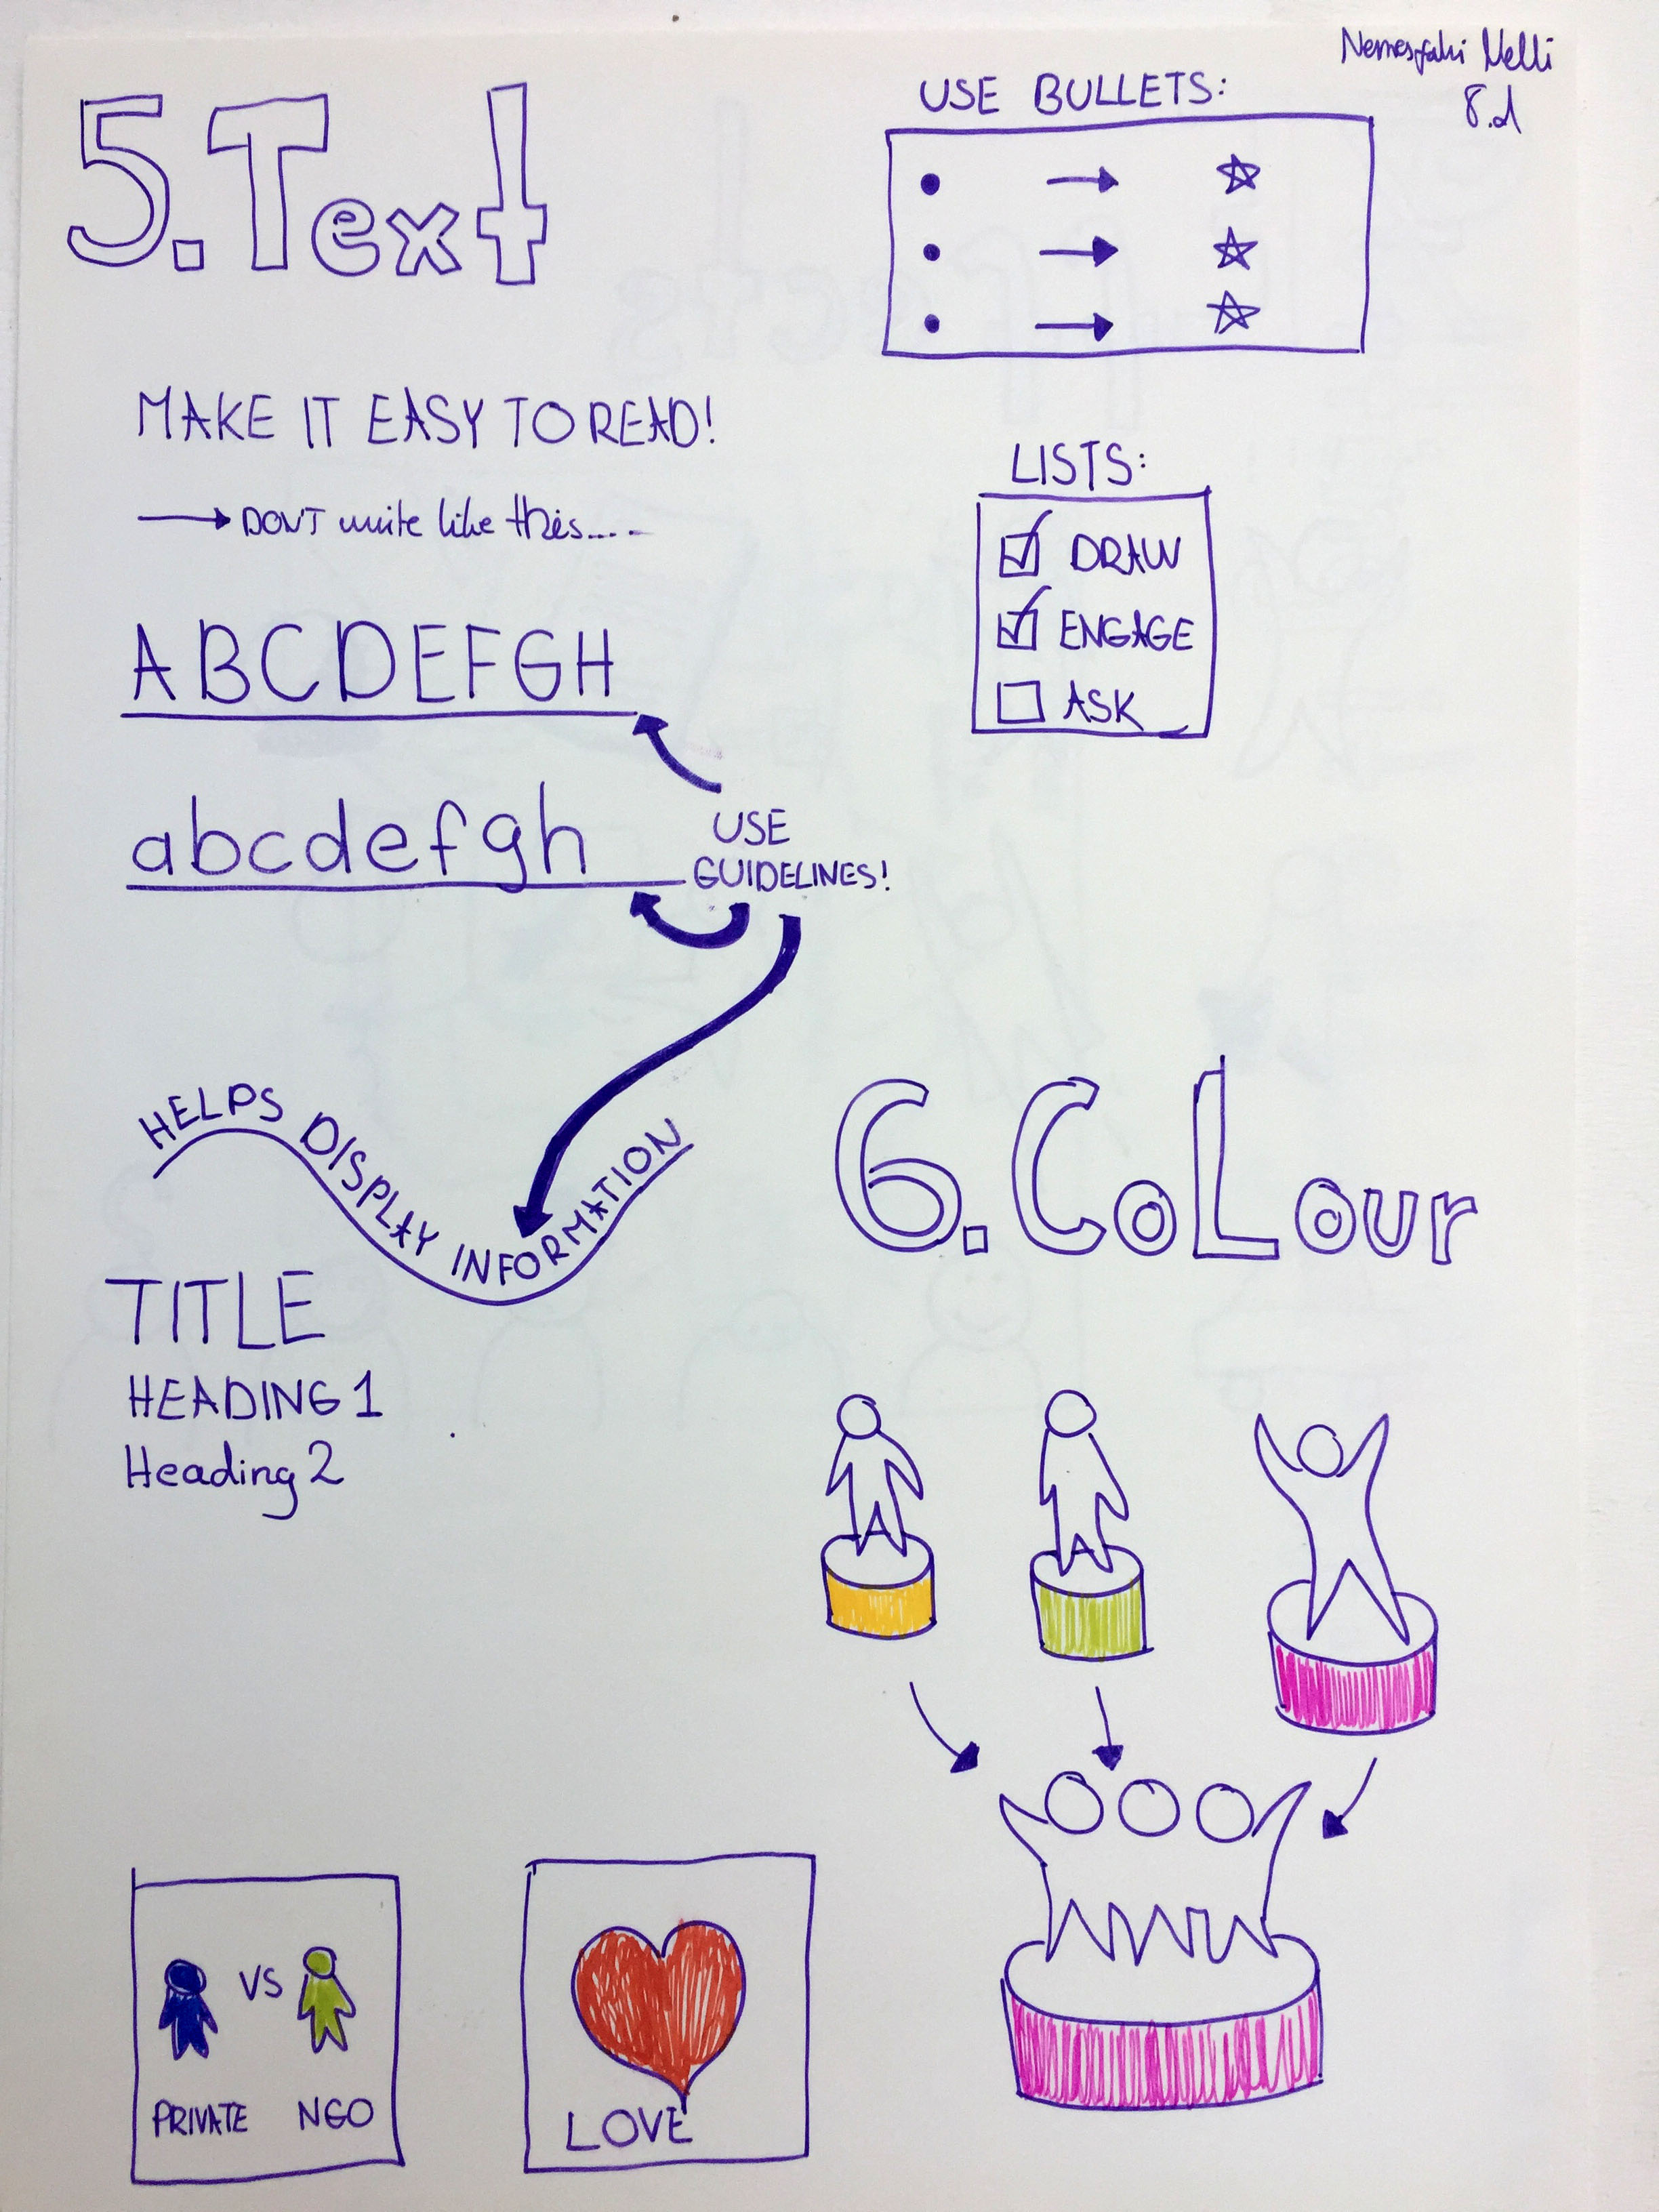 Nelli
8.d
5. Text
USE BULLETS:
MAKE IT EASY TO READ!
DON'T write like this.....
LISTS:
DRAW
ENGAGE
ASK
ABCDEFGH
abcdefgh
USE
GUIDELINES!
HELPS DISPLAY INFORMATION
TITLE
HEADING 1
Heading 2
6. CoLour
VS
PRIVATE NGO
LOVE